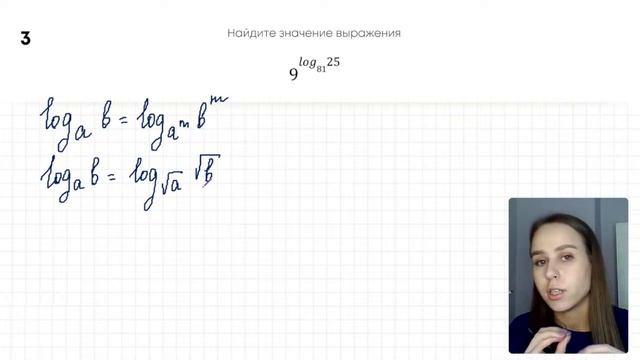 3
Найдите значение выражения
9^{log_{81}25}
log_a b = log_{a^m} b^m
log_a b = log_{√a} √b